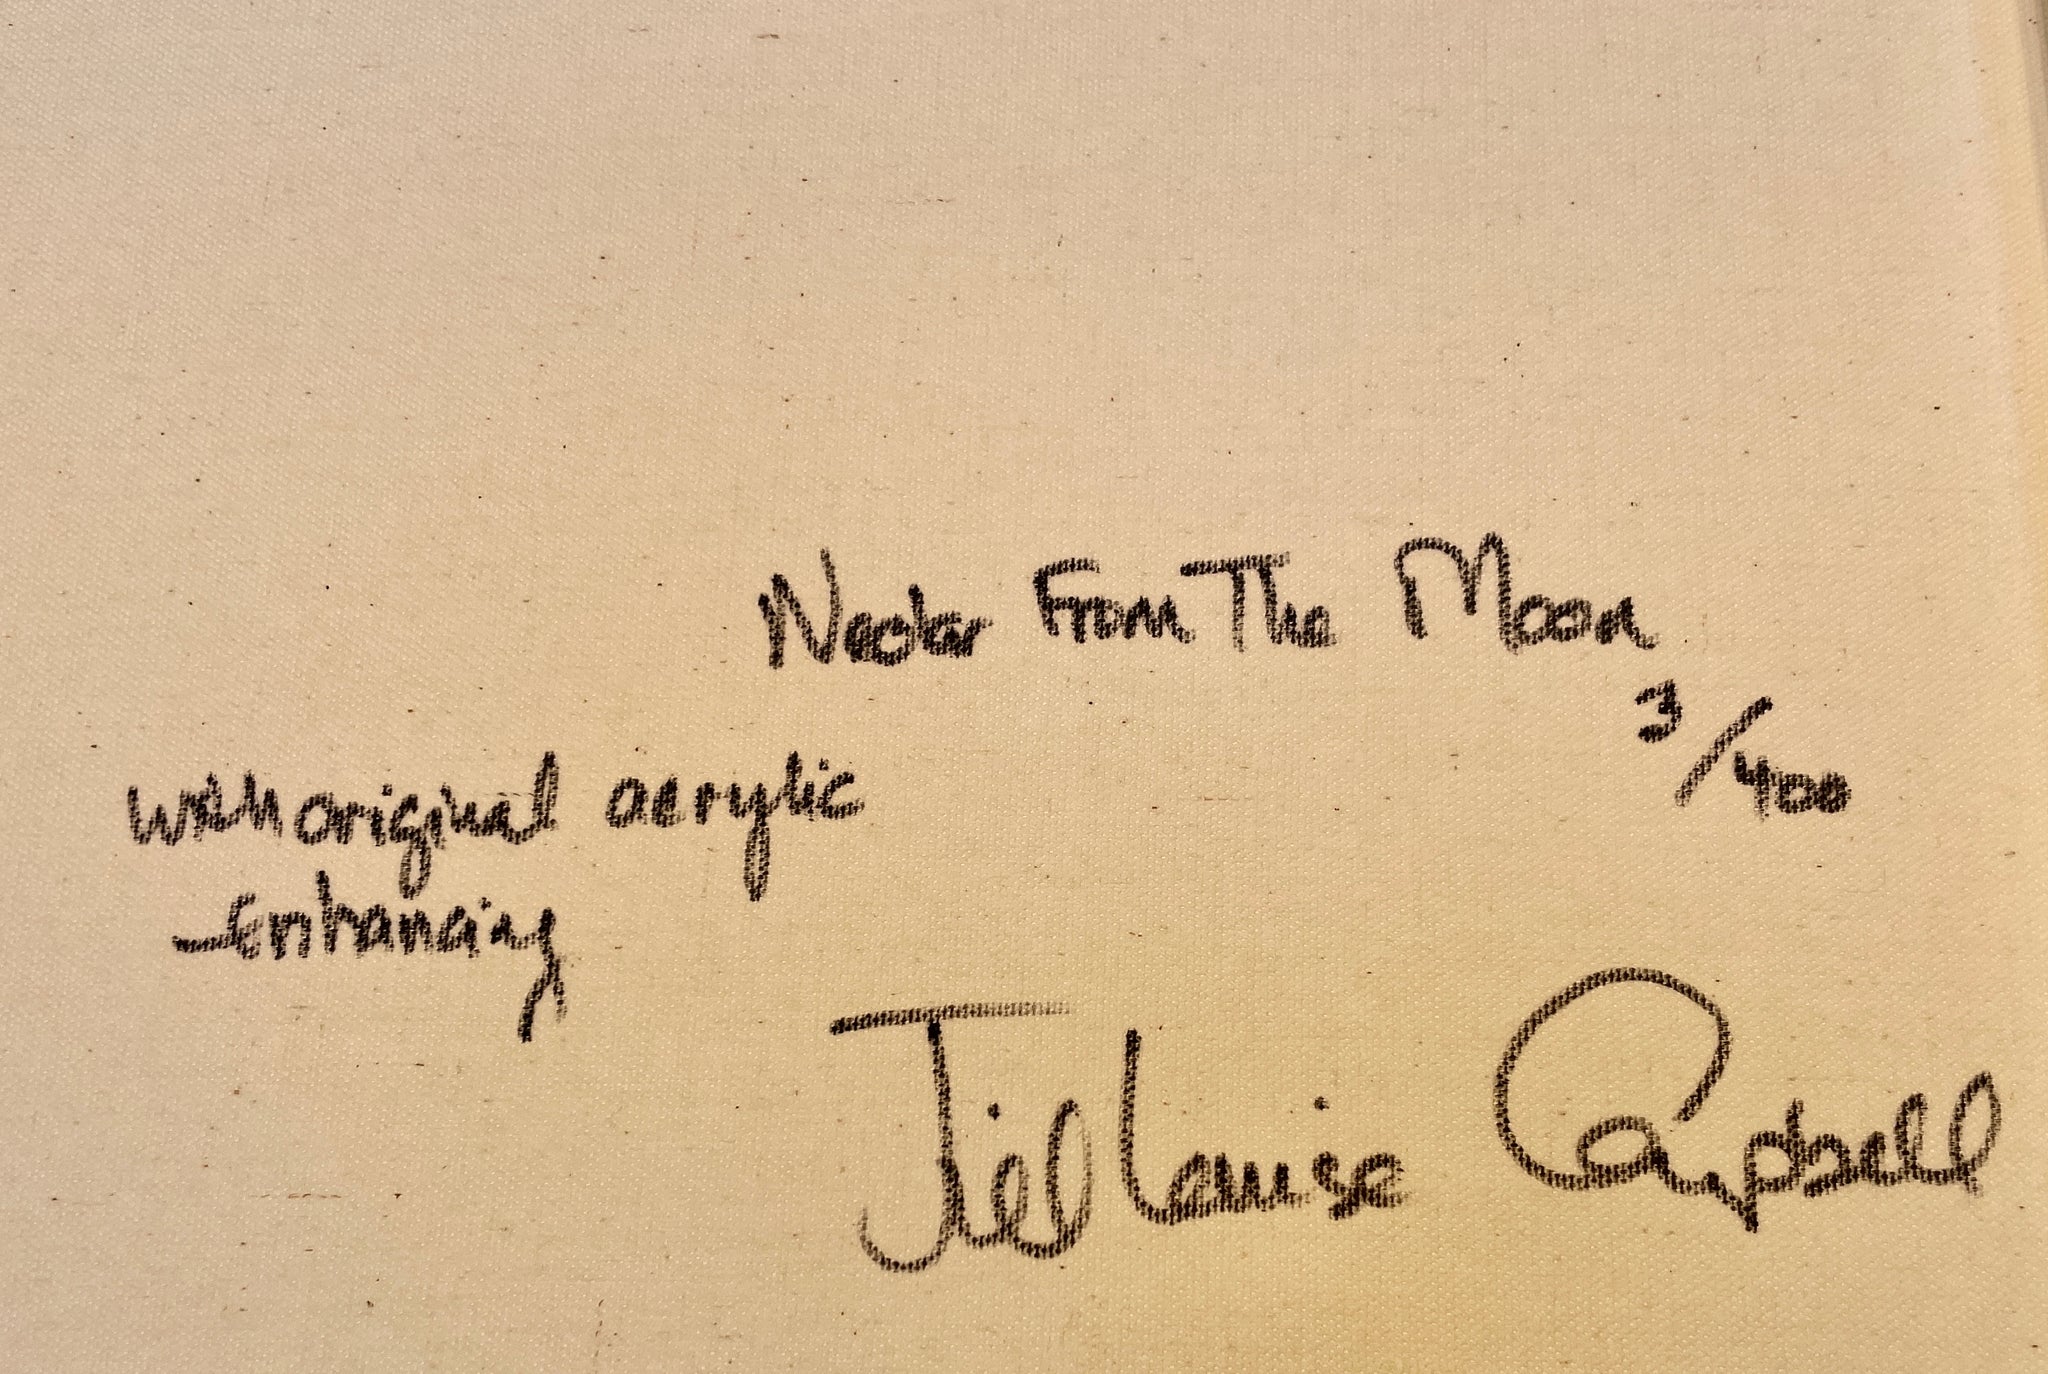 Nectar From The Moon
3/400
with original acrylic
enhancing
Jill Louise Campbell